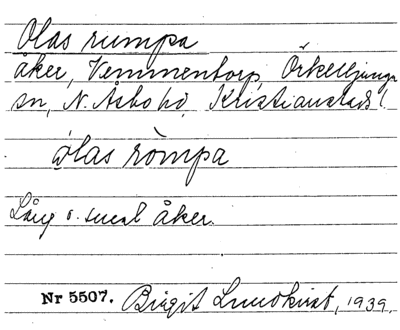 Olas rumpa
åker, Vemmentorp, Örkelljunga
sn, N. Åsbo hd, Kristianstads l.
o̱las ròmpa
Lång o. smal åker.
Nr 5507. Birgit Lundkvist, 1939.